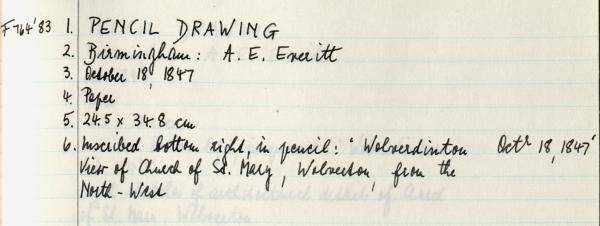 F764'83 1. PENCIL DRAWING
2. Birmingham: A. E. Everitt
3. October 18, 1847
4. Paper
5. 24.5 x 34.8 cm
6. Inscribed bottom right, in pencil: 'Wolverdinton Octr 18, 1847'
View of Church of St. Mary, Wolverton, from the
North-West
of architectural details of Church
of St. Mary, Wolverton